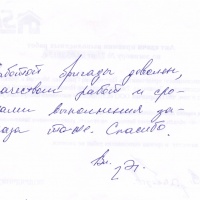 аботой бригады доволен,
ачеством работ и сро-
ами выполнения за-
аза тоже. Спасибо.